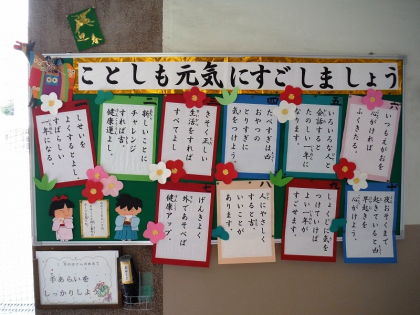 迎春
ことしも元気にすごしましょう
いつもえがおを
心がければ
ふくきたる。
いろいろな人と
会話すると
たのしい一年に
なります。
たべすぎは
おやつの
とりすぎに
気をつけよう。
きそく正しい
生活をすれば
すべてよし
新しいことに
チャレンジ
すれば吉。
健康運よし。
しせいを
よくするとよし。
すばらしい
一年になる。
夜おそくまで
起きていると凶
早起きを
心がけよう。
しょくじに気を
つけていけば
よい一年が
すごせます。
人にやさしく
するといい
ことが
あります。
げんきよく
外であそべば
健康アップ。
手あらいを
しっかりしよ